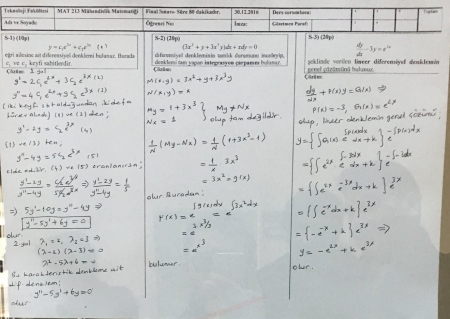 Teknoloji Fakültesi MAT 213 Mühendislik Matematiği Final Sınavı- Süre 80 dakikadır. 30.12.2016 Ders sorumlusu: Toplam
Adı ve Soyadı: Öğrenci No: İmza: Gözetmen Paraf:
S-1) (10p) y = c₁e²ˣ + c₂e³ˣ (*)
eğri ailesine ait diferansiyel denklemi bulunuz. Burada
c₁ ve c₂ keyfi sabitlerdir.
Çözüm: 1. yol
y' = 2c₁e²ˣ + 3c₂e³ˣ (2)
y'' = 4c₁e²ˣ + 9c₂e³ˣ (3)
(iki keyfi sabit olduğundan iki defa
türev alındı) (1) ve (2) den;
y' - 2y = c₂e³ˣ (4)
(1) ve (3) ten;
y'' - 4y = 5c₂e³ˣ (5)
elde edilir. (4) ve (5) oranlanırsa;
⇒ 5y' - 10y = y'' - 4y ⇒
y'' - 5y' + 6y = 0
olur.
2. yol λ₁ = 2, λ₂ = 3 ⇒
(λ-2)(λ-3) = 0
λ² - 5λ + 6 = 0
Bu karakteristik denkleme ait
dif. denklem;
y'' - 5y' + 6y = 0
olur.
S-2) (20p)
(3x³y + 3x²y + y)dx + xdy = 0
diferensiyel denkleminin tamlık durumunu inceleyip,
denklemi tam yapan integrasyon çarpanını bulunuz.
Çözüm:
N(x,y) = x
My = 1 + 3x³
Nx = 1
My ≠ Nx
olup tam değildir.
1/N (My - Nx) = 1/x (1 + 3x³ - 1)
= 1/x 3x³
= 3x² = g(x)
olur. Buradan;
= e^(x³)
bulunur.
S-3) (20p) dy/dx - 3y = e²ˣ
şeklinde verilen lineer diferensiyel denklemin
genel çözümünü bulunuz.
Çözüm:
dy/dx + P(x)y = Q(x) ⇒
P(x) = -3, Q(x) = e²ˣ
olup, lineer denklemin genel çözümü;
y = {∫Q(x) e^(∫P(x)dx) dx + k} e^(-∫P(x)dx)
= {∫e²ˣ e^(∫-3dx) dx + k} e^(-∫-3dx)
= {∫e²ˣ e⁻³ˣ dx + k} e³ˣ
= {∫e⁻ˣ dx + k} e³ˣ
= {-e⁻ˣ + k} e³ˣ ⇒
y = -e²ˣ + k e³ˣ
olur.